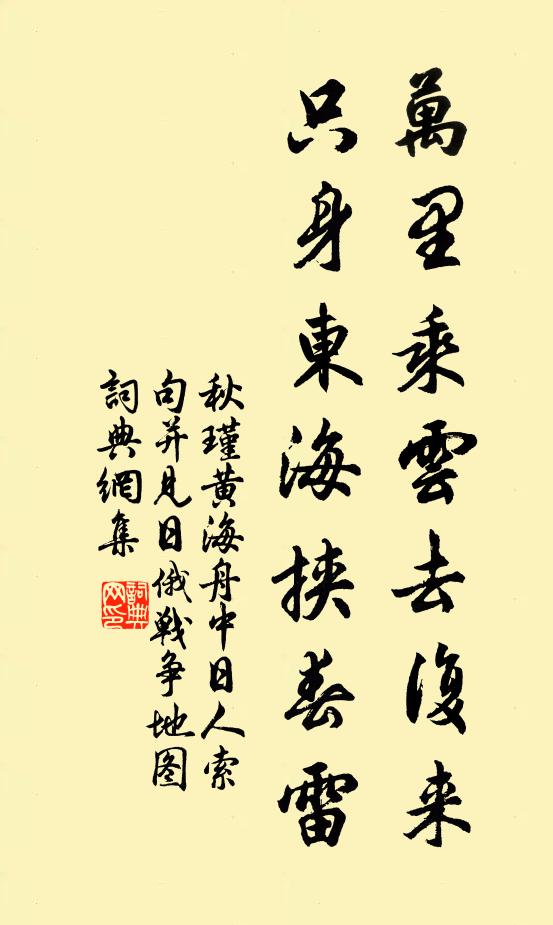 萬里乘雲去復来
只身東海挾春雷
秋瑾黄海舟中日人索
句并見日俄戰争地图
詞典網集
詞典
网印